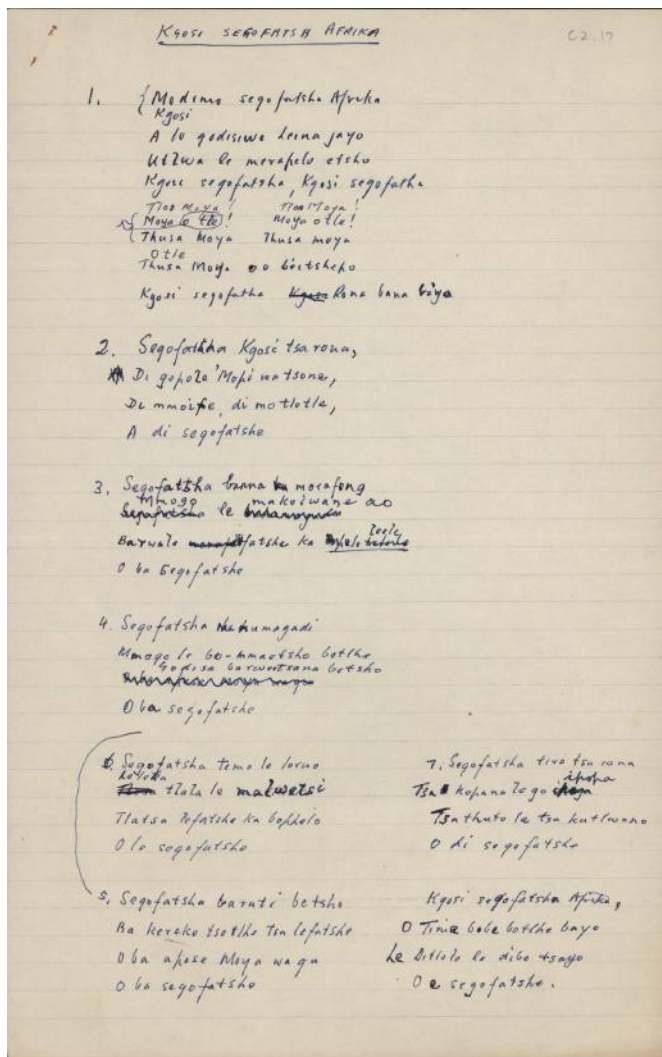 KGOSI SEGOFATSA AFRIKA
C2.17
1. Modimo segofatsha Afrika
Kgosi
A lo godisiwe leina jayo
Utlwa le merapelo etsho
Kgosi segofatsha, Kgosi segofatha
Tloo Moya! Tloo Moya!
Moya o tle! Moya otle!
Thusa Moya Thusa moya
Otle
Thusa Moya oo boitshepo
Kgosi segofatha Rona bana bayo
2. Segofatsha Kgosi tsa rona,
Di gopole 'Mopi wa tsone,
Di mmoife, di motlotle,
A di segofatshe
3. Segofattsha banna morafeng
Mmogo makolwane ao
le
Barwale fatshe ka
O ba segofatshe
4. Segofatsha humagadi
Mmogo le bo-mmaetsho botlhe
Godisa barwetsana betsho
O ba segofatshe
6. Segofatsha temo le loruo
tlala le malwetsi
Tlatsa lefatshe ka bophelo
O lo segofatshe
7. Segofatsha tiro tsa rona
ipopa
Tsa kopano le go
Tsa thuto le tsa kutlwano
O di segofatshe
5. Segofatsha baruti betsho
Ba kereke tsotlhe tsa lefatshe
O ba apese Moya wa gu
O ba segofatshe
Kgosi segofatsha Afrika,
O Time bobe botlhe bayo
Le Ditlolo le dibe tsayo
O e segofatshe.